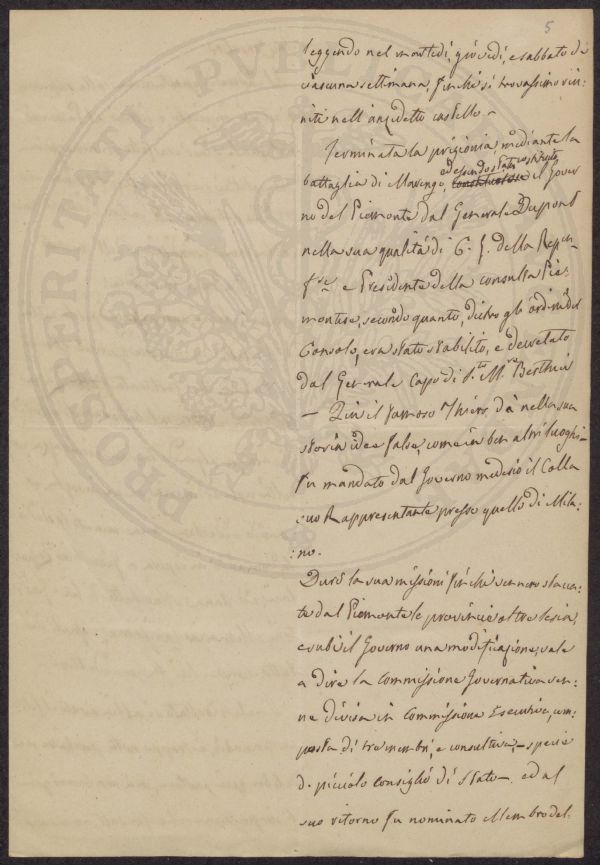 5
leggendo nel martedì, giovedì, e sabbato di
ciascuna settimana, finchè si trovassimo riu:
niti nell'anzidetto castello –
Terminata la prigionia, mediante la
battaglia di Marengo, ed essendo stato costituito il Gover
no del Piemonte dal Generale Dupont
nella sua qualità di della Repu:
e Presidente della consulta Pie:
montese, secondo quanto, dietro gli ordini del
Consolo, era stato stabilito, e decretato
dal Generale Capo di S.to M.re Berthier
– Qui il famoso Thiers, dà nella sua
storia idee false, come in ben altri luoghi –
fu mandato dal Governo medesio il Colla
suo Rappresentante presso quello di Mila:
:no.
Durò la sua missioni finchè vennero stacca:
te dal Piemonte le provincie oltre Sesia,
e subì il Governo una modificazione; vale
a dire la Commissione Governativa ven:
ne divisa in Commissione Esecutiva, com:
posta di tre membri, e consultiva, – specie
di picciolo consiglio di Stato –. ed al
suo ritorno fu nominato Membro del:
PROSPERITATI PVBLICAE